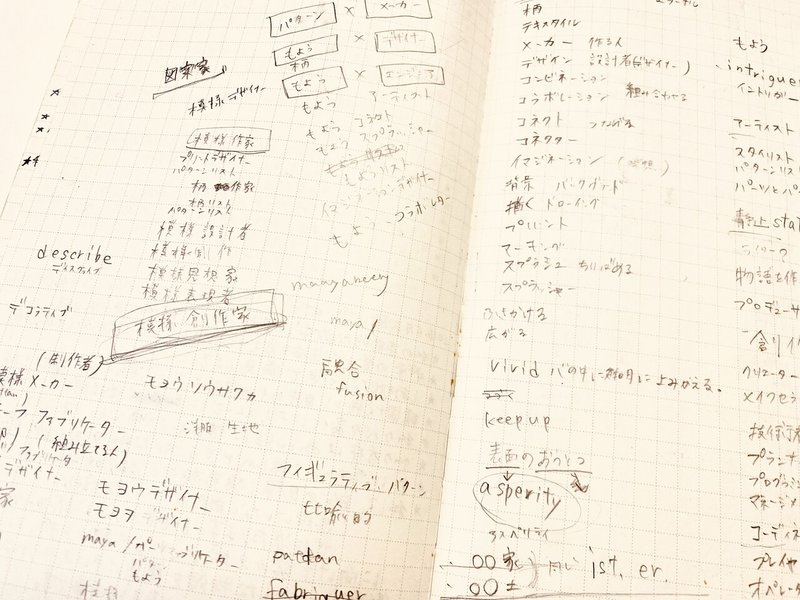 パターン × メーカー
もよう × デザイナー
柄
もよう × エンジニア
もよう アーティスト
もよう コネクト
もよう スプラッシャー
もようリスト
イマジネーションデザイナー
もよう コラボレーター
maya/
融合
fusion
フィギュラティブ パターン
比喩的
pattan
fabriquer
図案家
模様デザイナー
模様作家
プリントデザイナー
パターンリスト
柄 作家
柄リスト
パターンリスト
模様設計者
模様創作
模様思想家
模様表現者
模様 創作家
describe
ディスクライブ
デコラティブ
(創作者)
模様メーカー
モヨウソウサクカ
ファブリケーター
生地
(組み立てる人)
デザイナー
モヨウデザイナー
モヨヲ デザイナー
maya/
もよう
柄
テキスタイル
メーカー 作る人
デザイン 設計者(デザイナー)
コンビネーション
コラボレーション 組み合わせる
コネクト つなげる
コネクター
イマジネーション
背景 バックグランド
描く ドローイング
プリント
マーキング
スプラッシュ ちりばめる
スプラッシャー
ふきかける
広がる
vivid
keep up
表面のおうとつ
asperity
アスペリティ
〇〇家
〇〇士
ist, er.
もよう
intriguer
イントリガー
アーティスト
スタイリスト
パターンリス
パーツとパ
静止 sta
物語を作
プロデューサ
創り
クリエーター
メイクセラ
技術者
プランナ
プログラ
マネージメ
コーディネ
プレイヤ
オペレータ